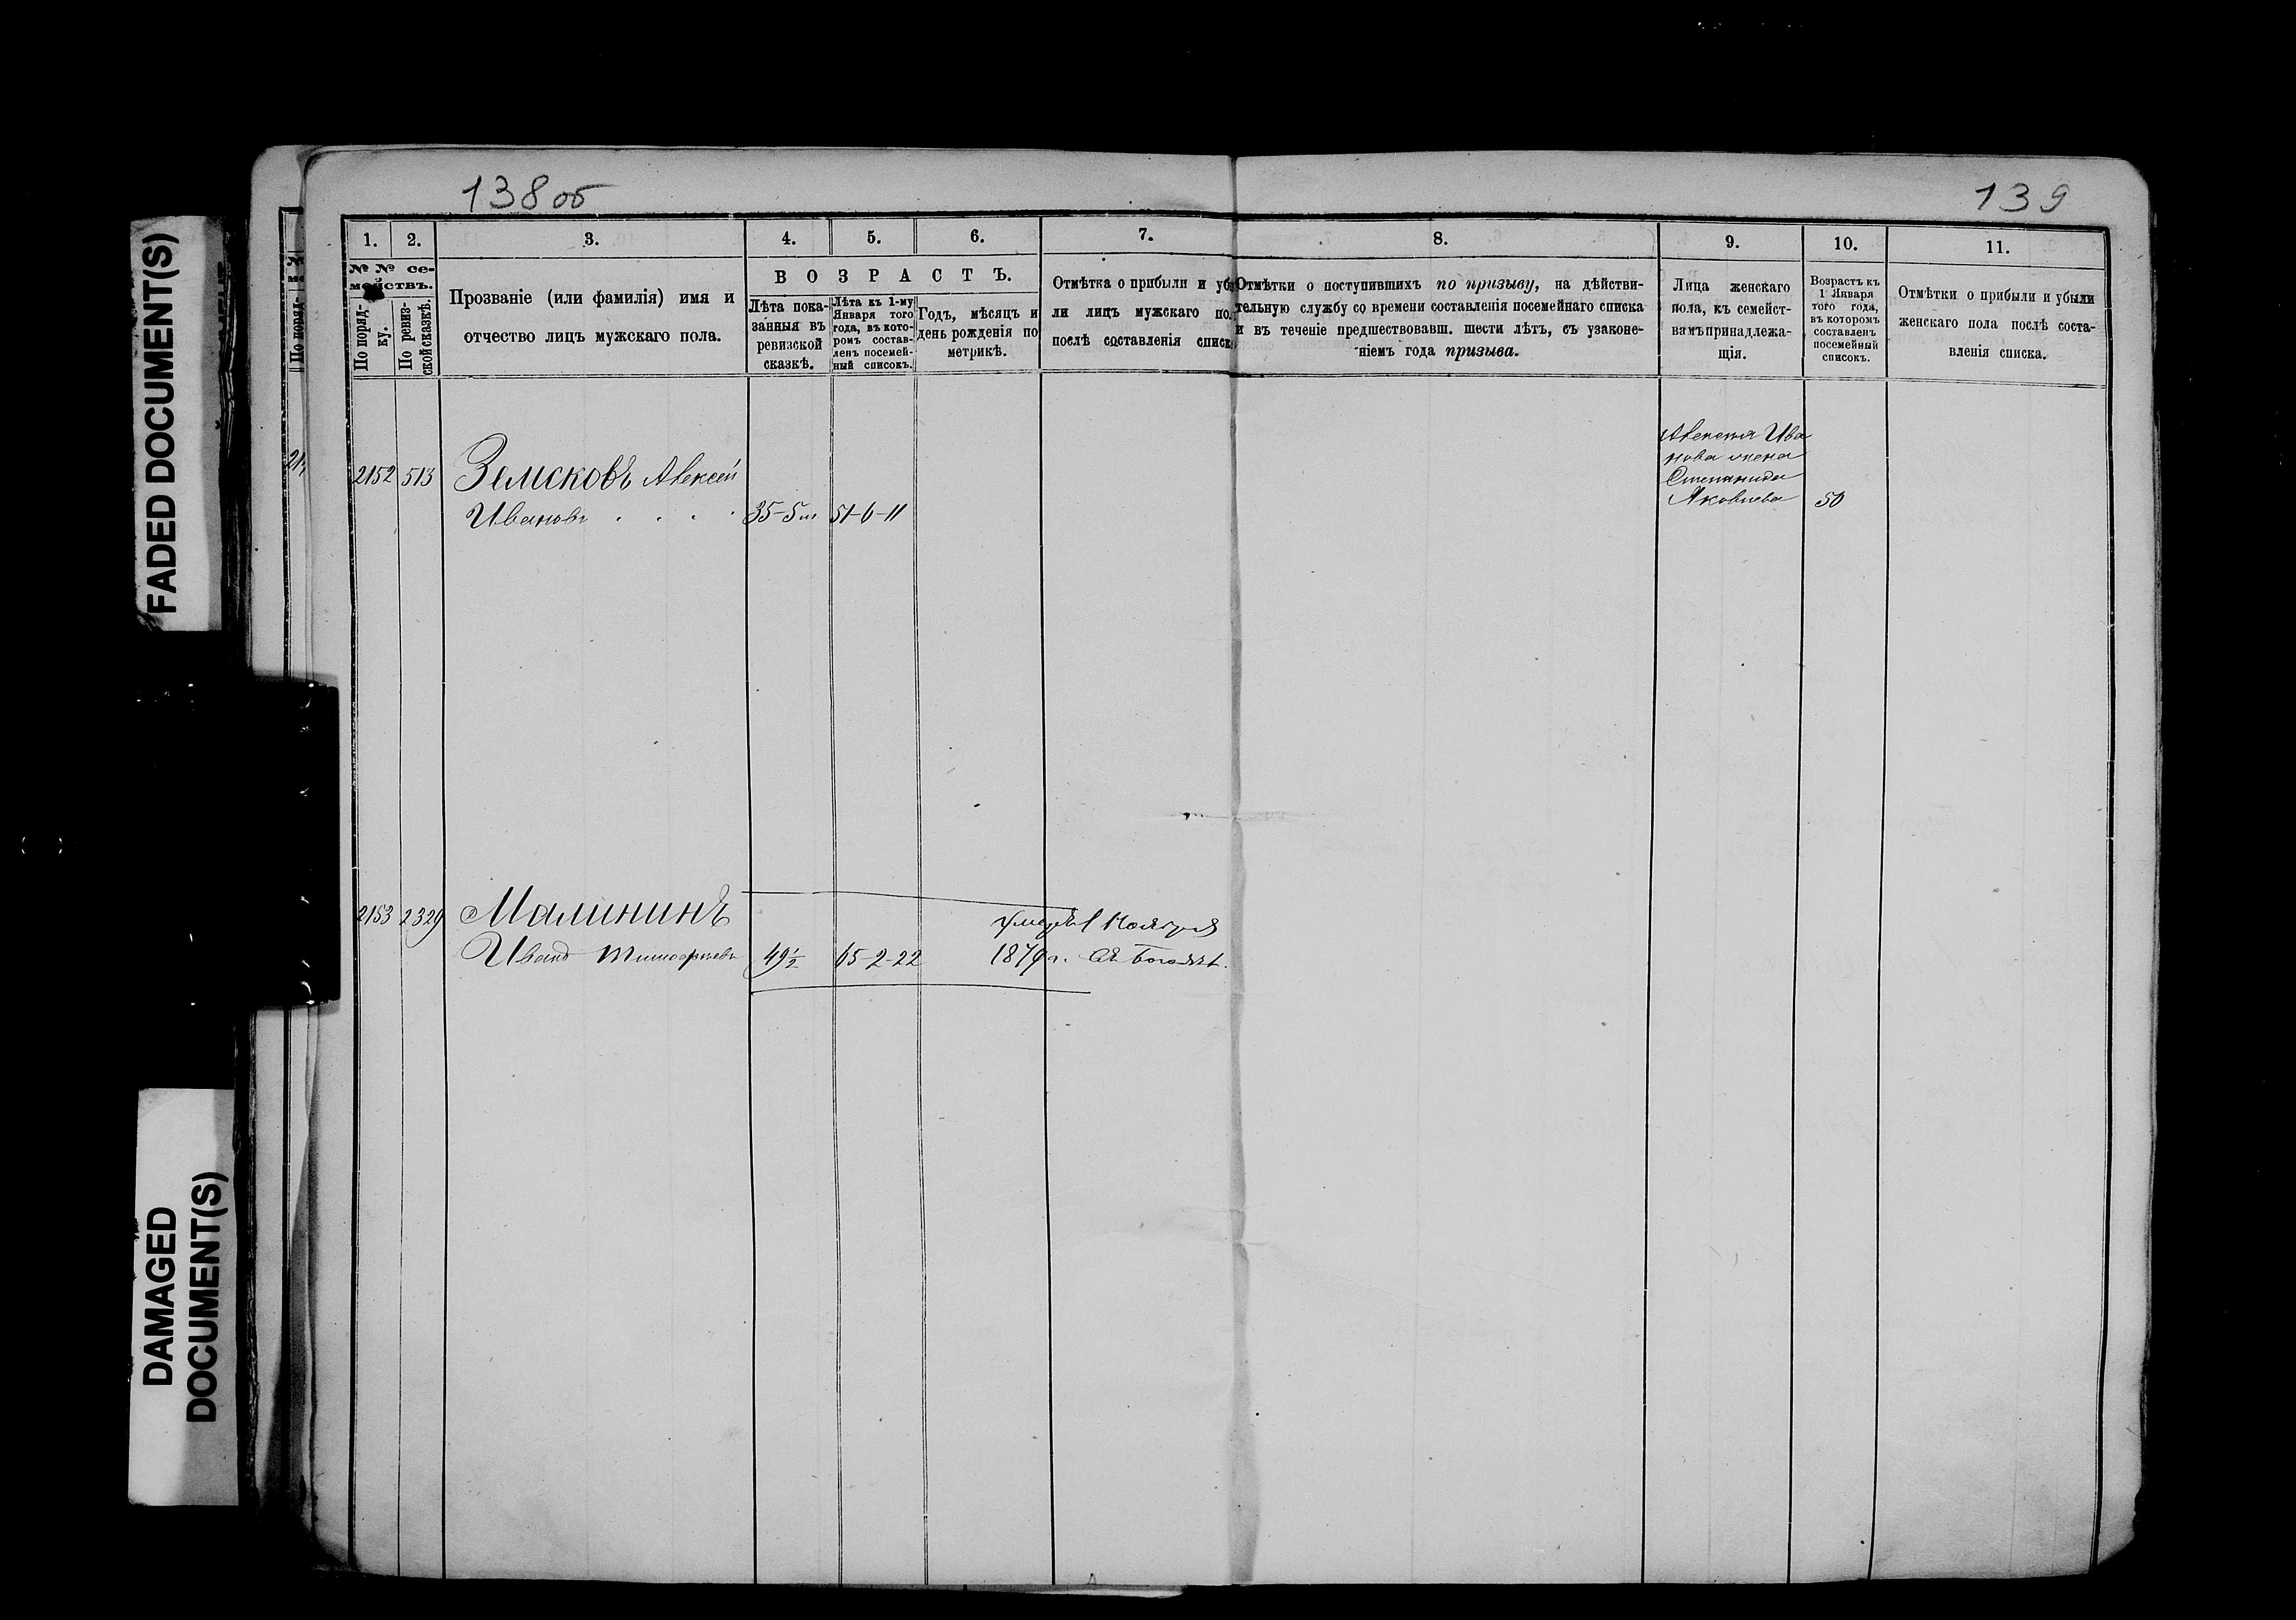 138 об
139
FADED DOCUMENT(S)
DAMAGED
DOCUMENT(S)
1.
2.
3.
4.
5.
6.
7.
8.
9.
10.
11.
№ № се-
мействъ.
По поряд-
ку.
По ревиз-
ской сказкѣ.
Прозваніе (или фамилія) имя и
отчество лицъ мужскаго пола.
ВОЗРАСТЪ.
Лѣта пока-
занныя въ
ревизской
сказкѣ.
Лѣта къ 1-му
Января того
года, въ кото-
ромъ состав-
ленъ посемей-
ный списокъ.
Годъ, мѣсяцъ и
день рожденія по
метрикѣ.
Отмѣтка о прибыли и убы
ли лицъ мужскаго по
послѣ составленія списк
Отмѣтки о поступившихъ по призыву, на дѣйстви-
тельную службу со времени составленія посемейнаго списка
и въ теченіе предшествовавш. шести лѣтъ, съ узаконе-
ніемъ года призыва.
Лица женскаго
пола, къ семейст-
вамъ принадлежа-
щія.
Возрастъ къ
1 Января
того года,
въ которомъ
составленъ
посемейный
списокъ.
Отмѣтки о прибыли и убыли
женскаго пола послѣ соста-
вленія списка.
2152 513 Земсковъ Алексей
Ивановъ 35-5м 51-6-11
Алексея Ива
нова жена
Степанида
Яковлева 50
2153 2329 Малининъ
Иванъ Тимофеевъ 49½ 65-2-22
умеръ 1 Ноября
1879 г.